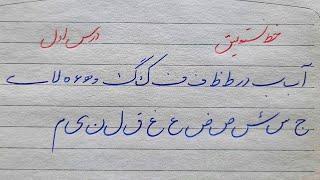 خط نستعلیق درس اول
آ ب ب د ر ط ظ ف ف ک گ و لا ے
ج س ش ص ض ع غ ق ل ن ی م